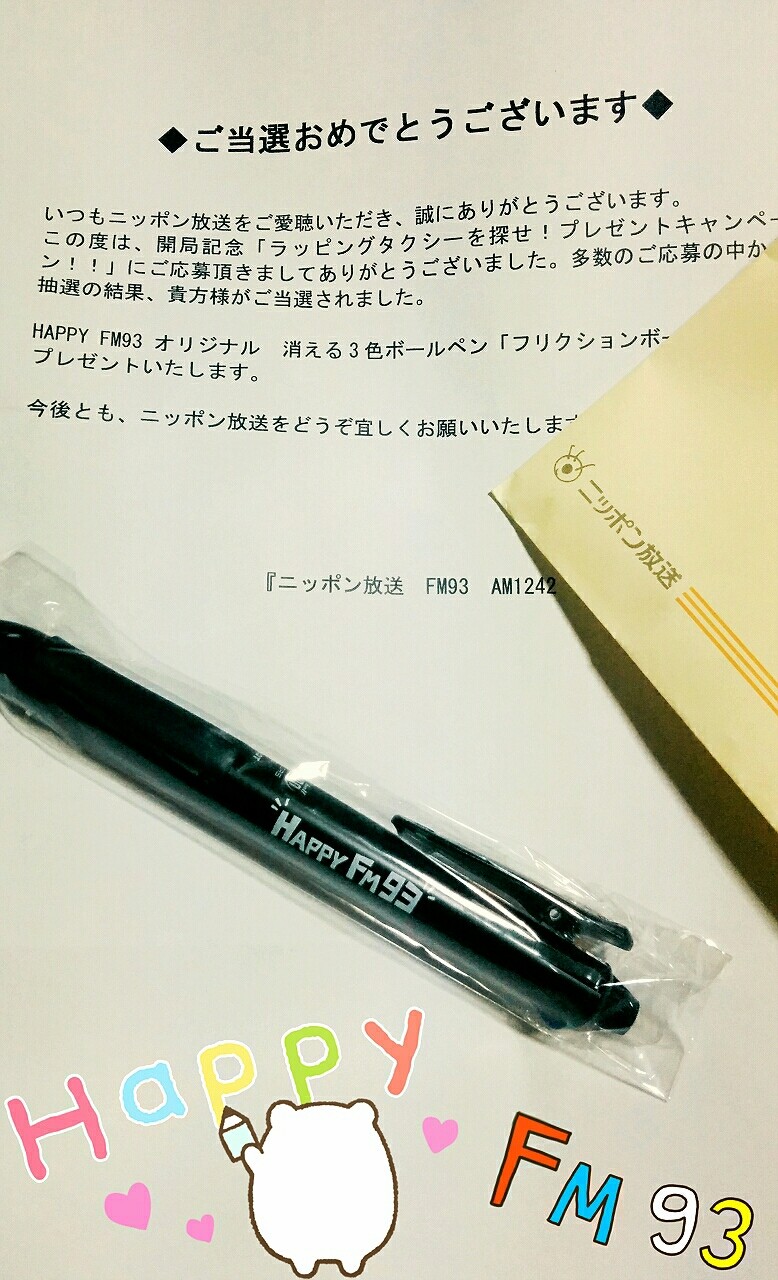 ◆ご当選おめでとうございます◆
いつもニッポン放送をご愛聴いただき、誠にありがとうございます。
この度は、開局記念「ラッピングタクシーを探せ！プレゼントキャンペー
ン！！」にご応募頂きましてありがとうございました。多数のご応募の中か
抽選の結果、貴方様がご当選されました。
HAPPY FM93 オリジナル 消える３色ボールペン「フリクションボー
プレゼントいたします。
今後とも、ニッポン放送をどうぞ宜しくお願いいたします
ニッポン放送
『ニッポン放送 FM93 AM1242
HAPPY FM93
Happy
FM93